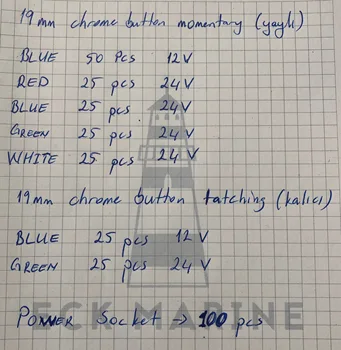 19mm chrome button momentary (yaylı)
BLUE 50 Pcs 12V
RED 25 pcs 24V
BLUE 25 pcs 24V
GREEN 25 pcs 24V
WHITE 25 pcs 24V
19mm chrome button tatching (kalıcı)
BLUE 25 pcs 12V
GREEN 25 pcs 24V
ECK MARINE
POWER Socket → 100 pcs